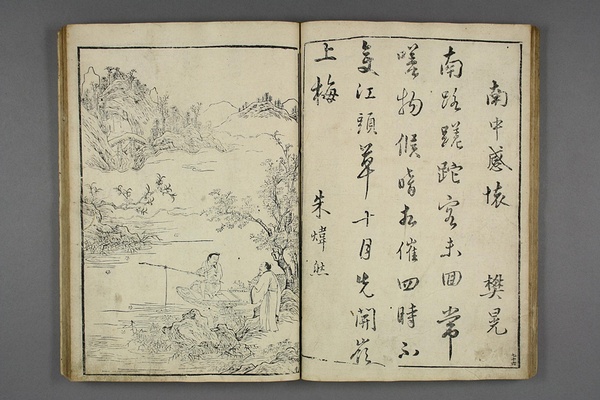 南中感懷 樊晃
南路蹉跎客未回常
嗟物候暗相催四時不
變江頭草十月先開嶺
上梅 朱煒然